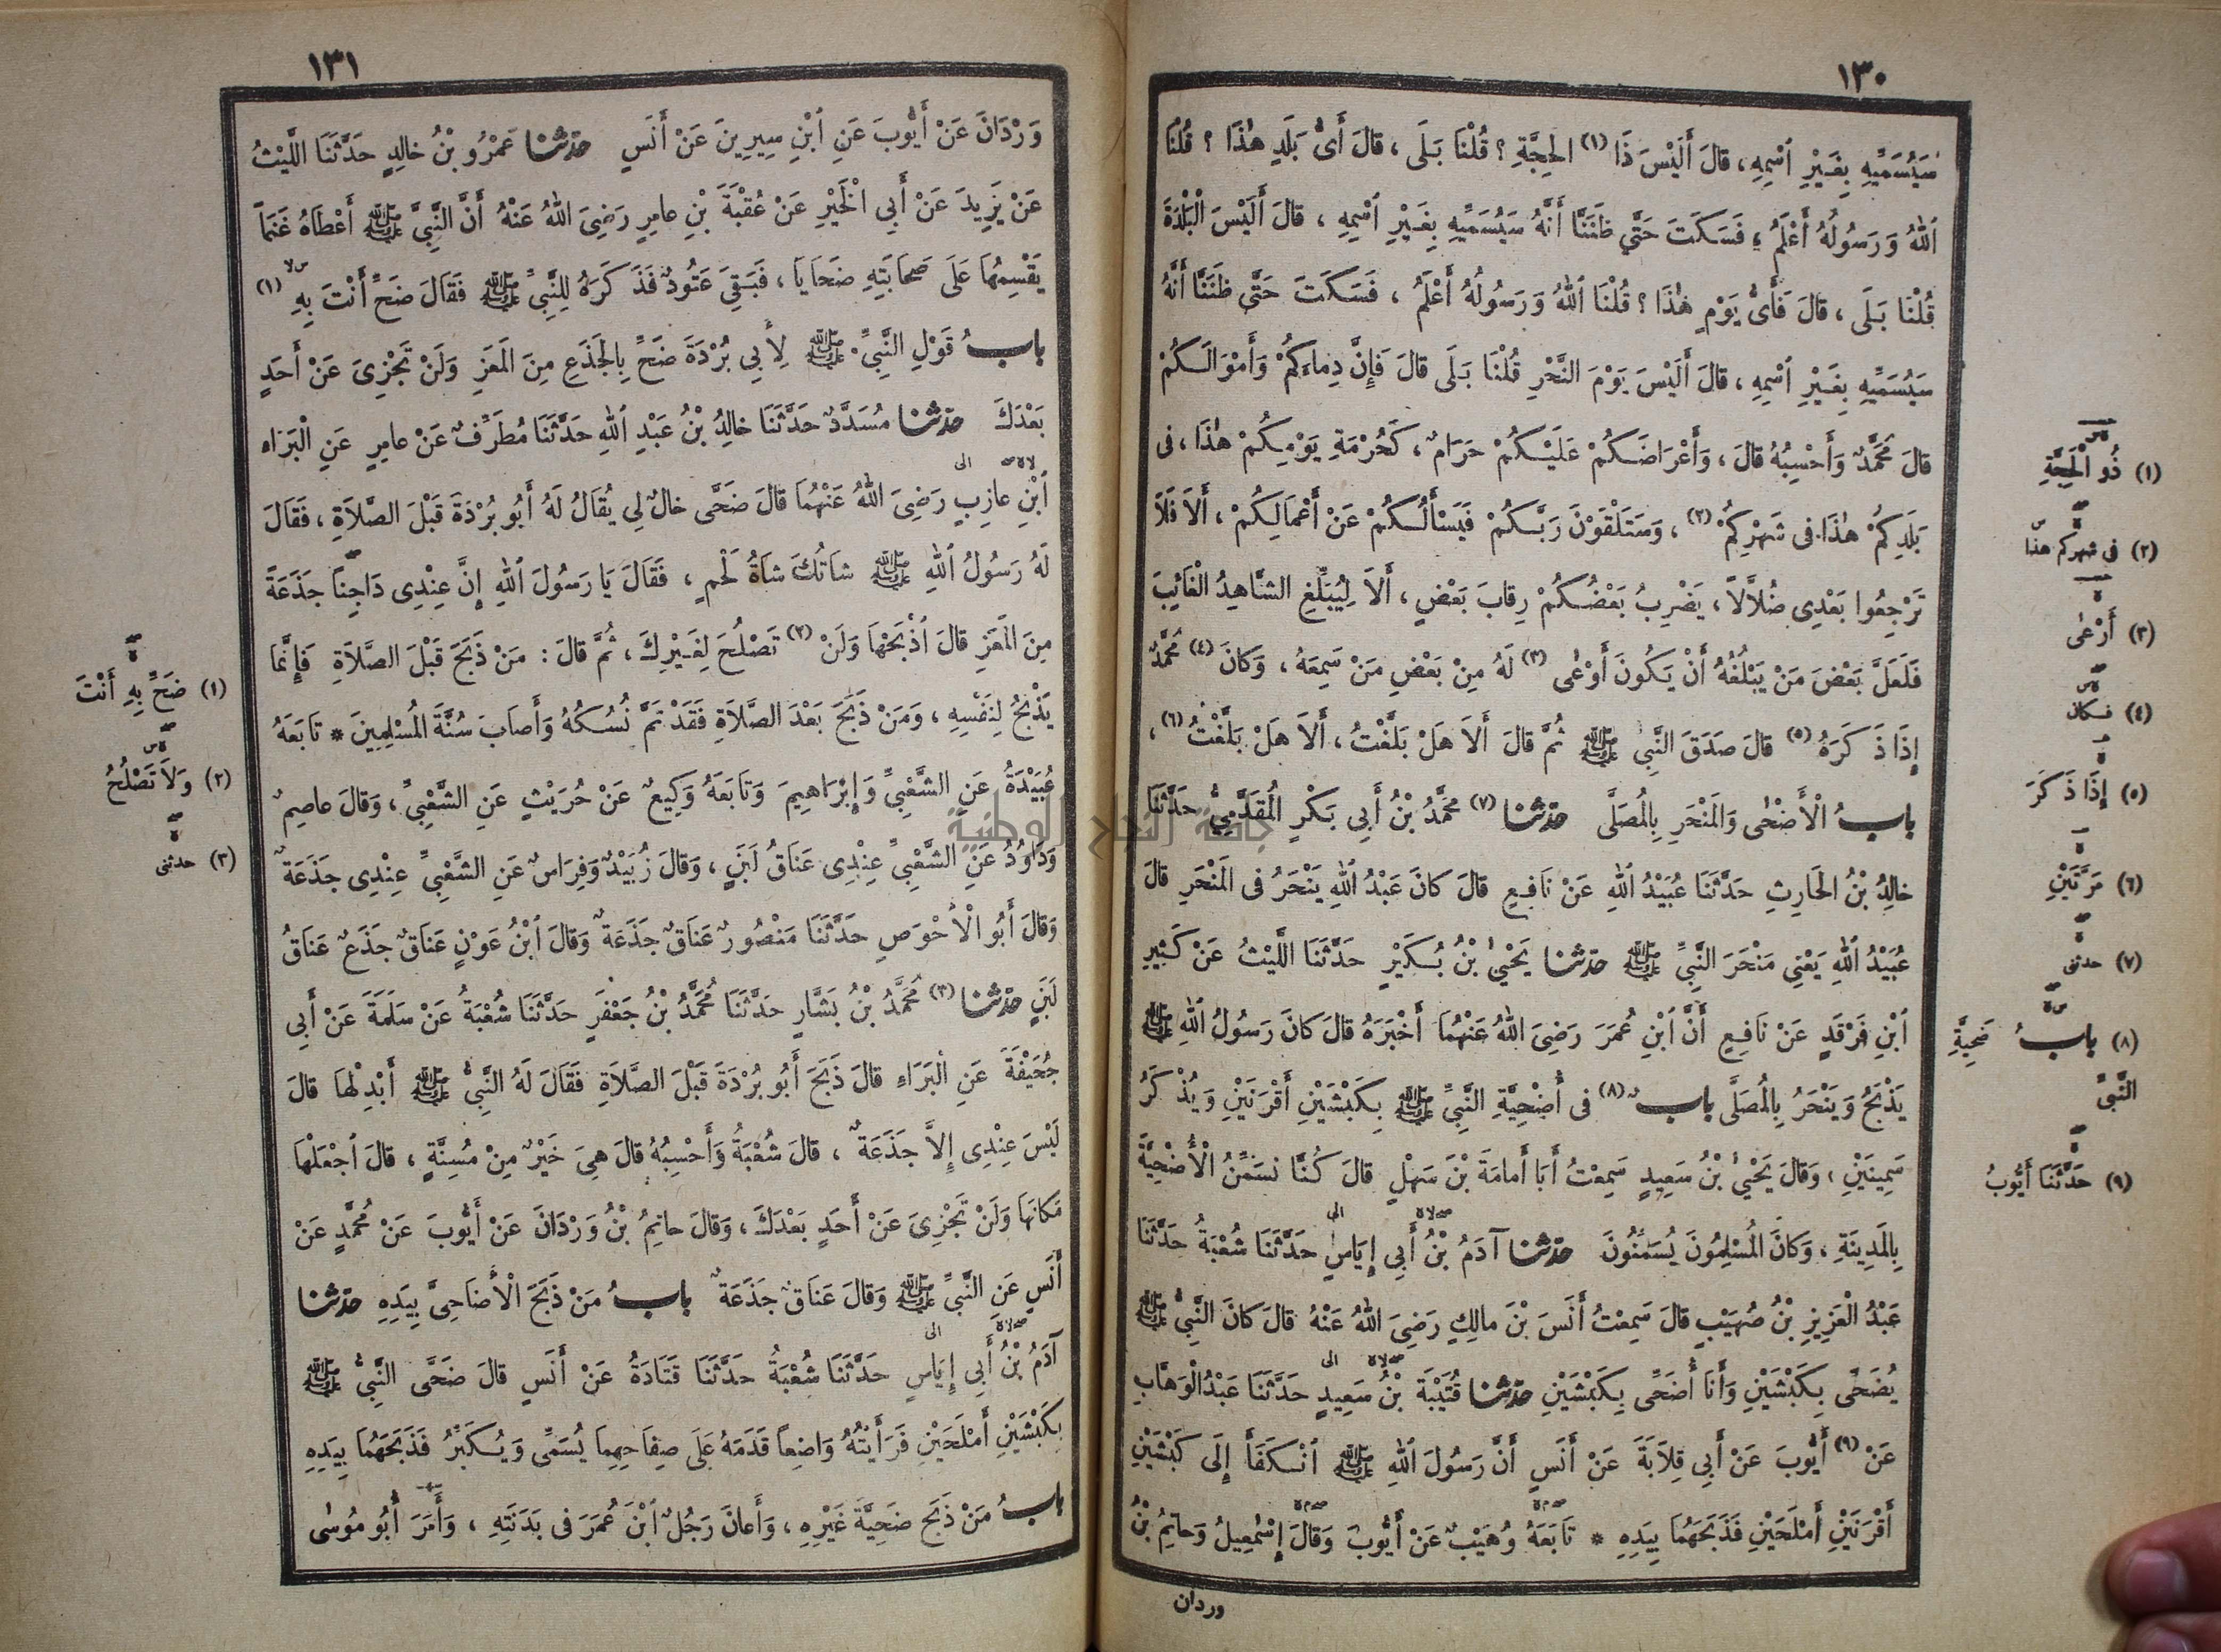 ١٣٠
سَيُسَمِّيهِ بِغَيْرِ ٱسْمِهِ ، قالَ أَلَيْسَ ذَا (١) الْحِجَّةِ ؟ قُلْنَا بَلَى ، قالَ أَىُّ بَلَدٍ هٰذَا ؟ قُلْنَا
ٱللهُ وَرَسُولُهُ أَعْلَمُ ، فَسَكَتَ حَتَّى ظَنَنَّا أَنَّهُ سَيُسَمِّيهِ بِغَيْرِ ٱسْمِهِ ، قالَ أَلَيْسَ الْبَلْدَةَ
قُلْنَا بَلَى ، قالَ فَأَىُّ يَوْمٍ هٰذَا ؟ قُلْنَا ٱللهُ وَرَسُولُهُ أَعْلَمُ ، فَسَكَتَ حَتَّى ظَنَنَّا أَنَّهُ
سَيُسَمِّيهِ بِغَيْرِ ٱسْمِهِ ، قالَ أَلَيْسَ يَوْمَ النَّحْرِ قُلْنَا بَلَى قالَ فَإِنَّ دِماءَكُمْ وَأَمْوَالَكُمْ
قالَ مُحَمَّدٌ وَأَحْسِبُهُ قالَ ، وَأَعْرَاضَكُمْ عَلَيْكُمْ حَرَامٌ ، كَحُرْمَةِ يَوْمِكُمْ هٰذَا ، فِى
بَلَدِكُمْ هٰذَا فِى شَهْرِكُمْ (٢) ، وَسَتَلْقَوْنَ رَبَّكُمْ فَيَسْأَلُكُمْ عَنْ أَعْمَالِكُمْ ، أَلاَ فَلاَ
تَرْجِعُوا بَعْدِى ضُلاَّلاً ، يَضْرِبُ بَعْضُكُمْ رِقابَ بَعْضٍ ، أَلاَ لِيُبَلِّغِ الشَّاهِدُ الْغَائِبَ
فَلَعَلَّ بَعْضَ مَنْ يَبْلُغُهُ أَنْ يَكُونَ أَوْعٰى (٣) لَهُ مِنْ بَعْضِ مَنْ سَمِعَهُ ، وَكانَ (٤) مُحَمَّدٌ
إِذَا ذَكَرَهُ (٥) قالَ صَدَقَ النَّبِىُّ ﷺ ثُمَّ قالَ أَلاَ هَلْ بَلَّغْتُ ، أَلاَ هَلْ بَلَّغْتُ (٦) ،
بابُ الْأَضْحٰى وَالْمَنْحَرِ بِالْمُصَلَّى حَدَّثَنَا (٧) مُحَمَّدُ بْنُ أَبِى بَكْرٍ الْمُقَدَّمِىُّ حَدَّثَنَا
خالِدُ بْنُ الْحَارِثِ حَدَّثَنَا عُبَيْدُ ٱللهِ عَنْ نَافِعٍ قالَ كانَ عَبْدُ ٱللهِ يَنْحَرُ فِى الْمَنْحَرِ قالَ
عُبَيْدُ ٱللهِ يَعْنِى مَنْحَرَ النَّبِىِّ ﷺ حَدَّثَنَا يَحْيٰى بْنُ بُكَيْرٍ حَدَّثَنَا اللَّيْثُ عَنْ كَثِيرِ
ٱبْنِ فَرْقَدٍ عَنْ نَافِعٍ أَنَّ ٱبْنَ عُمَرَ رَضِىَ اللهُ عَنْهُمَا أَخْبَرَهُ قالَ كانَ رَسُولُ ٱللهِ ﷺ
يَذْبَحُ وَيَنْحَرُ بِالْمُصَلَّى بابٌ (٨) فِى أُضْحِيَّةِ النَّبِىِّ ﷺ بِكَبْشَيْنِ أَقْرَنَيْنِ وَيُذْكَرُ
سَمِينَيْنِ ، وَقالَ يَحْيٰى بْنُ سَعِيدٍ سَمِعْتُ أَبَا أُمامَةَ بْنَ سَهْلٍ قالَ كُنَّا نُسَمِّنُ الْأُضْحِيَّةَ
بِالْمَدِينَةِ ، وَكانَ الْمُسْلِمُونَ يُسَمِّنُونَ حَدَّثَنَا آدَمُ بْنُ أَبِى إِيَاسٍ حَدَّثَنَا شُعْبَةُ حَدَّثَنَا
عَبْدُ الْعَزِيزِ بْنُ صُهَيْبٍ قالَ سَمِعْتُ أَنَسَ بْنَ مالِكٍ رَضِىَ اللهُ عَنْهُ قالَ كانَ النَّبِىُّ ﷺ
يُضَحِّى بِكَبْشَيْنِ وَأَنَا أُضَحِّى بِكَبْشَيْنِ حَدَّثَنَا قُتَيْبَةُ بْنُ سَعِيدٍ حَدَّثَنَا عَبْدُ الْوَهَّابِ
عَنْ (٩) أَيُّوبَ عَنْ أَبِى قِلاَبَةَ عَنْ أَنَسٍ أَنَّ رَسُولَ ٱللهِ ﷺ ٱنْكَفَأَ إِلَى كَبْشَيْنِ
أَقْرَنَيْنِ أَمْلَحَيْنِ فَذَبَحَهُمَا بِيَدِهِ * تَابَعَهُ وُهَيْبٌ عَنْ أَيُّوبَ وَقالَ إِسْمٰعِيلُ وَحاتِمُ بْنُ
وردان
(١) ذُو الْحِجَّةِ
(٢) فى شهركم هذا
(٣) أَرْعٰى
(٤) فكان
(٥) إِذَا ذَكَرَ
(٦) مَرَّتَيْنِ
(٧) حدثنى
(٨) بابُ ضَحِيَّةِ
النَّبِىِّ
(٩) حَدَّثَنَا أَيُّوبُ
١٣١
وَرْدَانَ عَنْ أَيُّوبَ عَنِ ٱبْنِ سِيرِينَ عَنْ أَنَسٍ حَدَّثَنَا عَمْرُو بْنُ خالِدٍ حَدَّثَنَا اللَّيْثُ
عَنْ يَزِيدَ عَنْ أَبِى الْخَيْرِ عَنْ عُقْبَةَ بْنِ عامِرٍ رَضِىَ اللهُ عَنْهُ أَنَّ النَّبِىَّ ﷺ أَعْطَاهُ غَنَمًا
يَقْسِمُهَا عَلَى صَحَابَتِهِ ضَحَايَا ، فَبَقِىَ عَتُودٌ فَذَكَرَهُ لِلنَّبِىِّ ﷺ فَقَالَ ضَحِّ أَنْتَ بِهِ (١)
بابُ قَوْلِ النَّبِىِّ ﷺ لِأَبِى بُرْدَةَ ضَحِّ بِالْجَذَعِ مِنَ الْمَعَزِ وَلَنْ تَجْزِىَ عَنْ أَحَدٍ
بَعْدَكَ حَدَّثَنَا مُسَدَّدٌ حَدَّثَنَا خالِدُ بْنُ عَبْدِ ٱللهِ حَدَّثَنَا مُطَرِّفٌ عَنْ عامِرٍ عَنِ الْبَرَاءِ
ٱبْنِ عازِبٍ رَضِىَ اللهُ عَنْهُمَا قالَ ضَحَّى خالٌ لِى يُقَالُ لَهُ أَبُو بُرْدَةَ قَبْلَ الصَّلاَةِ ، فَقَالَ
لَهُ رَسُولُ ٱللهِ ﷺ شاتُكَ شاةُ لَحْمٍ ، فَقَالَ يَا رَسُولَ ٱللهِ إِنَّ عِنْدِى دَاجِنًا جَذَعَةً
مِنَ الْمَعَزِ قالَ ٱذْبَحْهَا وَلَنْ (٢) تَصْلُحَ لِغَيْرِكَ ، ثُمَّ قالَ : مَنْ ذَبَحَ قَبْلَ الصَّلاَةِ فَإِنَّمَا
يَذْبَحُ لِنَفْسِهِ ، وَمَنْ ذَبَحَ بَعْدَ الصَّلاَةِ فَقَدْ تَمَّ نُسُكُهُ وَأَصَابَ سُنَّةَ الْمُسْلِمِينَ * تابَعَهُ
عُبَيْدَةُ عَنِ الشَّعْبِىِّ وَإِبْرَاهِيمَ وَتَابَعَهُ وَكِيعٌ عَنْ حُرَيْثٍ عَنِ الشَّعْبِىِّ ، وَقالَ عاصِمٌ
وَدَاوُدُ عَنِ الشَّعْبِىِّ عِنْدِى عَنَاقُ لَبَنٍ ، وَقالَ زُبَيْدٌ وَفِرَاسٌ عَنِ الشَّعْبِىِّ عِنْدِى جَذَعَةٌ
وَقالَ أَبُو الْأَحْوَصِ حَدَّثَنَا مَنْصُورٌ عَنَاقٌ جَذَعَةٌ وَقالَ ٱبْنُ عَوْنٍ عَنَاقٌ جَذَعٌ عَنَاقُ
لَبَنٍ حَدَّثَنَا (٣) مُحَمَّدُ بْنُ بَشَّارٍ حَدَّثَنَا مُحَمَّدُ بْنُ جَعْفَرٍ حَدَّثَنَا شُعْبَةُ عَنْ سَلَمَةَ عَنْ أَبِى
جُحَيْفَةَ عَنِ الْبَرَاءِ قالَ ذَبَحَ أَبُو بُرْدَةَ قَبْلَ الصَّلاَةِ فَقَالَ لَهُ النَّبِىُّ ﷺ أَبْدِلْهَا قالَ
لَيْسَ عِنْدِى إِلاَّ جَذَعَةٌ ، قالَ شُعْبَةُ وَأَحْسِبُهُ قالَ هِىَ خَيْرٌ مِنْ مُسِنَّةٍ ، قالَ ٱجْعَلْهَا
مَكانَهَا وَلَنْ تَجْزِىَ عَنْ أَحَدٍ بَعْدَكَ ، وَقالَ حاتِمُ بْنُ وَرْدَانَ عَنْ أَيُّوبَ عَنْ مُحَمَّدٍ عَنْ
أَنَسٍ عَنِ النَّبِىِّ ﷺ وَقالَ عَنَاقٌ جَذَعَةٌ بابُ مَنْ ذَبَحَ الْأَضَاحِىَّ بِيَدِهِ حَدَّثَنَا
آدَمُ بْنُ أَبِى إِيَاسٍ حَدَّثَنَا شُعْبَةُ حَدَّثَنَا قَتَادَةُ عَنْ أَنَسٍ قالَ ضَحَّى النَّبِىُّ ﷺ
بِكَبْشَيْنِ أَمْلَحَيْنِ فَرَأَيْتُهُ وَاضِعًا قَدَمَهُ عَلَى صِفَاحِهِمَا يُسَمِّى وَيُكَبِّرُ فَذَبَحَهُمَا بِيَدِهِ
بابُ مَنْ ذَبَحَ ضَحِيَّةَ غَيْرِهِ ، وَأَعانَ رَجُلٌ ٱبْنَ عُمَرَ فِى بَدَنَتِهِ ، وَأَمَرَ أَبُو مُوسٰى
(١) ضَحِّ بِهِ أَنْتَ
(٢) وَلاَ تَصْلُحُ
(٣) حدثنى
جامعة النجاح الوطنية